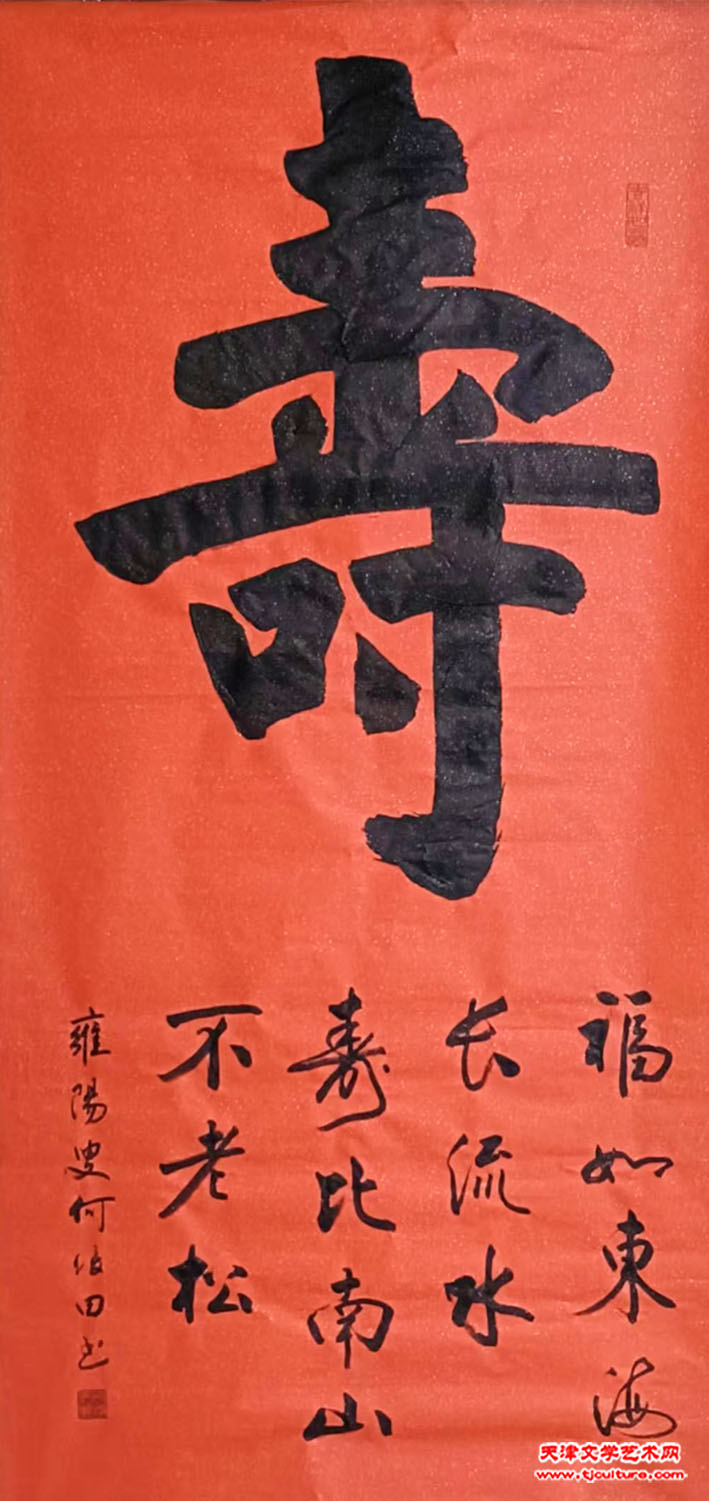 寿
福如東海
长流水
寿比南山
不老松
雍陽叟何伯田书
天津文学艺术网
www.tjculture.com